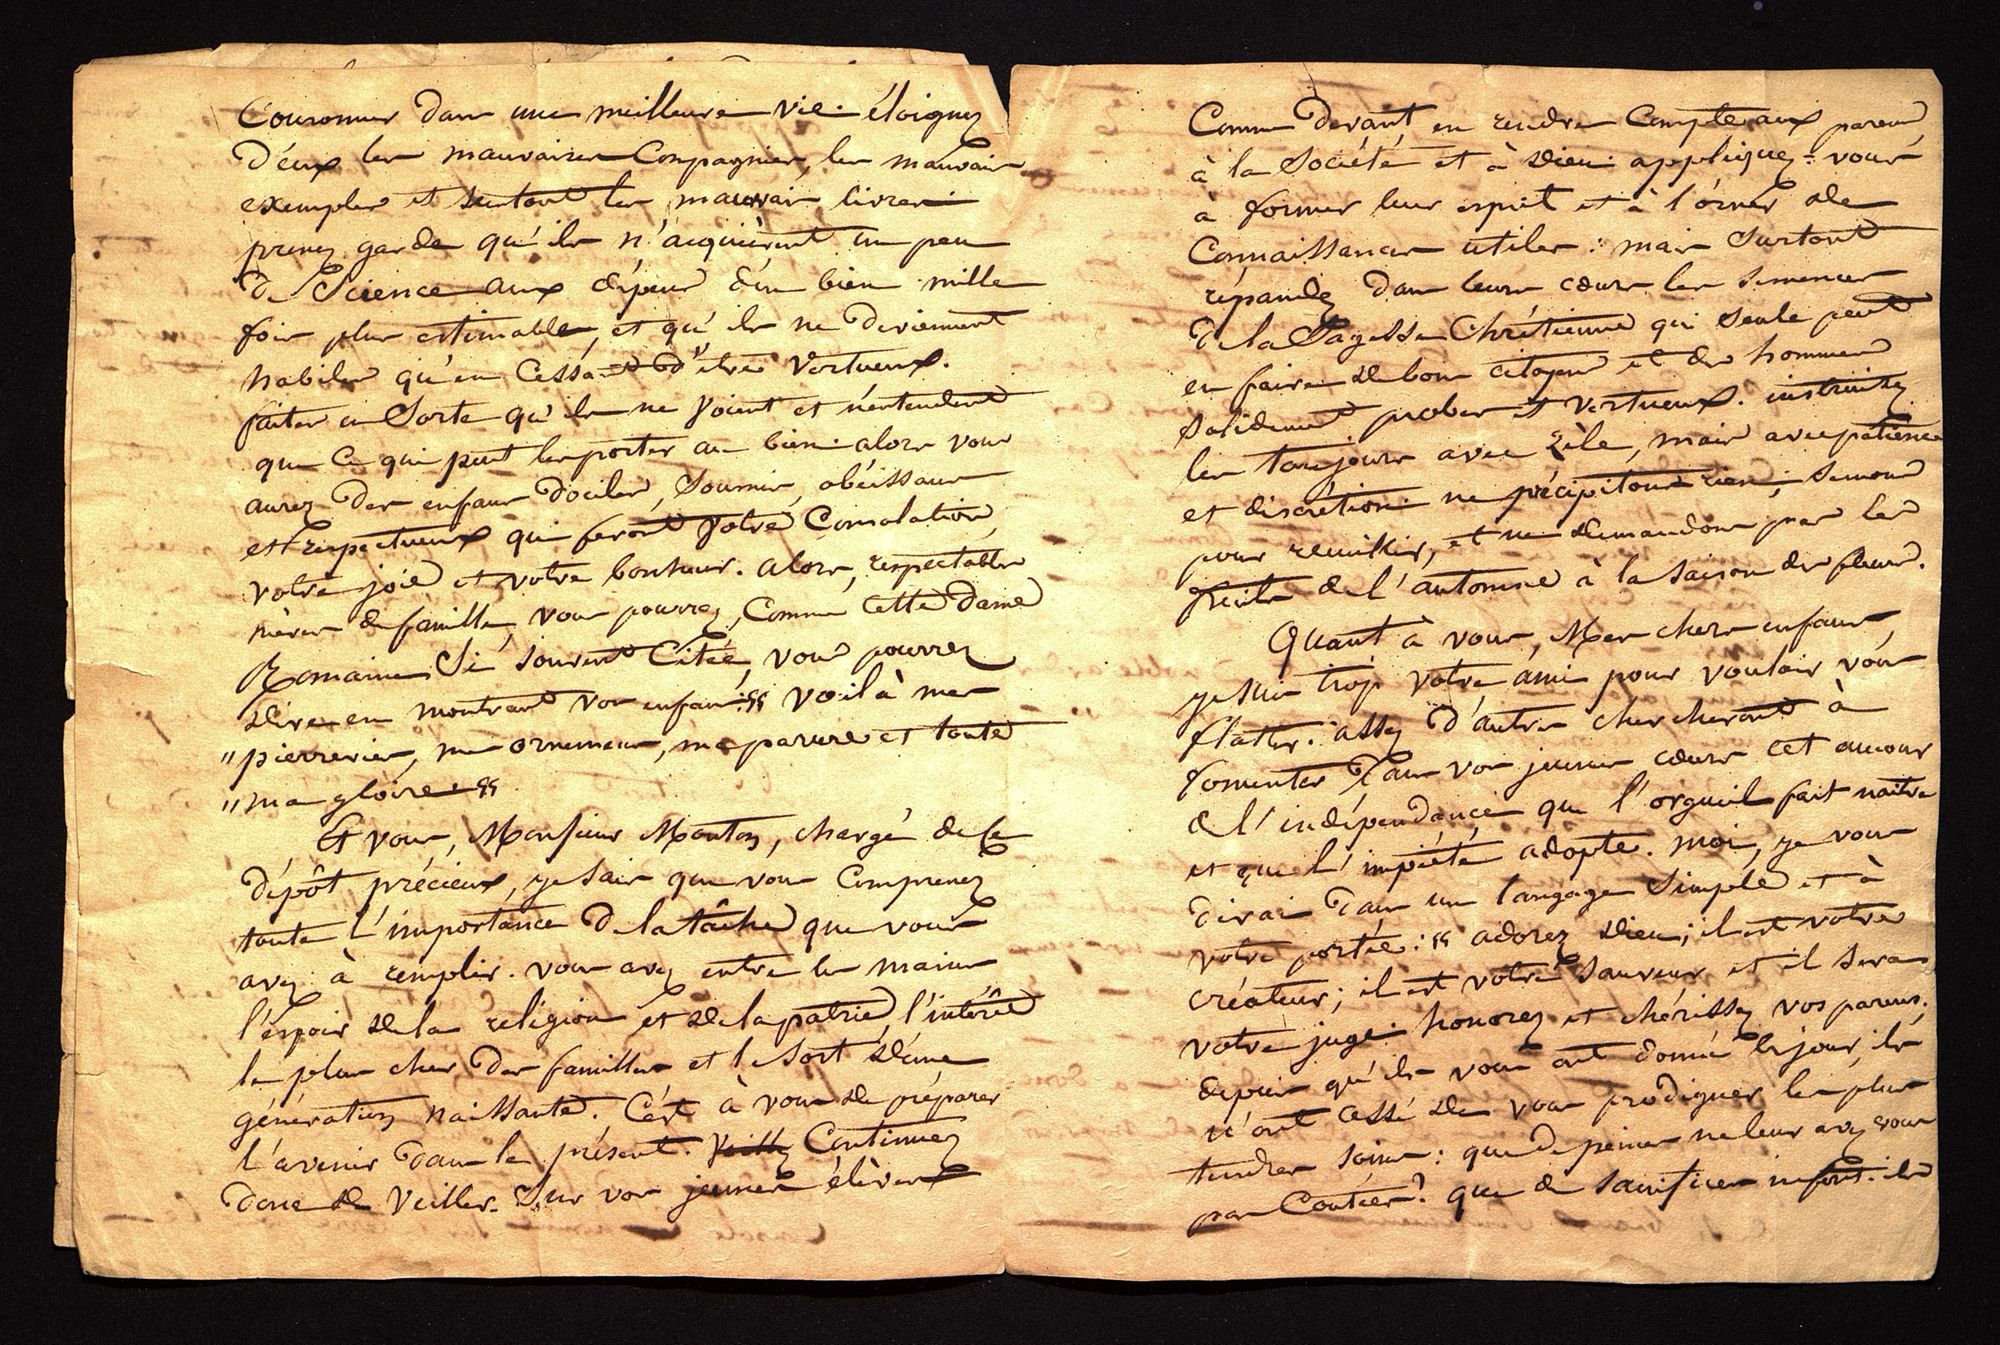 Couronner dans une meilleure vie. éloignez
d'eux les mauvaises Compagnies, les mauvais
exemples et surtout les mauvais livres.
prenez garde qu'ils n'acquièrent un peu
de Science aux dépens d'un bien mille
fois plus estimable, et qu'ils ne deviennent
habiles qu'en Cessant d'être Vertueux.
faites en Sorte qu'ils ne Voient et n'entendent
que Ce qui peut les porter au bien. alors vous
aurez des enfans dociles, Soumis, obéissans
et respectueux qui feront Votre Consolation,
votre joie et votre bonheur. alors, respectables
mères de famille, vous pourrez, Comme Cette dame
Romaine Si souvent Citée, vous pourrez
dire en montrant vos enfans: " voilà mes
" pierreries, mes ornemens, ma parure et toute
" ma gloire "
Et vous, Monsieur Mouton, chargé de Ce
dépôt précieux, je sais que vous Comprenez
toute l'importance de la tâche que vous
avez à remplir. vous avez entre les mains
l'espoir de la religion et de la patrie, l'intérêt
le plus cher des familles et le Sort d'une
génération naissante. C'est à vous de préparer
l'avenir dans le présent. Veillez Continuez
donc de Veiller Sur vos jeunes élèves
Comme devant en rendre Compte aux parens
à la Société et à dieu. appliquez-vous
à former leur esprit et à l'orner de
Connaissances utiles: mais Surtout
répandez dans leurs cœurs les semences
de la Sagesse Chrétienne qui Seule peut
en faire de bons citoyens et des hommes
Solidement probes et vertueux. instruisez
les toujours avec zèle, mais avec patience
et discrétion. ne précipitons rien; semons
pour recueillir, et ne demandons pas les
fruits de l'automne à la saison des fleurs.
Quant à vous, Mes chers enfans,
je suis trop votre ami pour vouloir vous
flatter. assez d'autres chercheront à
fomenter dans vos jeunes cœurs cet amour
de l'indépendance que l'orgueil fait naître
et que l'impiété adopte. moi, je vous
dirai dans un langage Simple et à
votre portée: " adorez dieu; il est votre
créateur; il est votre Sauveur et il sera
votre juge. honorez et chérissez vos parens;
depuis qu'ils vous ont donné le jour, ils
n'ont cessé de vous prodiguer les plus
tendres soins: que de peines ne leur avez vous
pas Coûtées? que de sacrifices ne font-ils